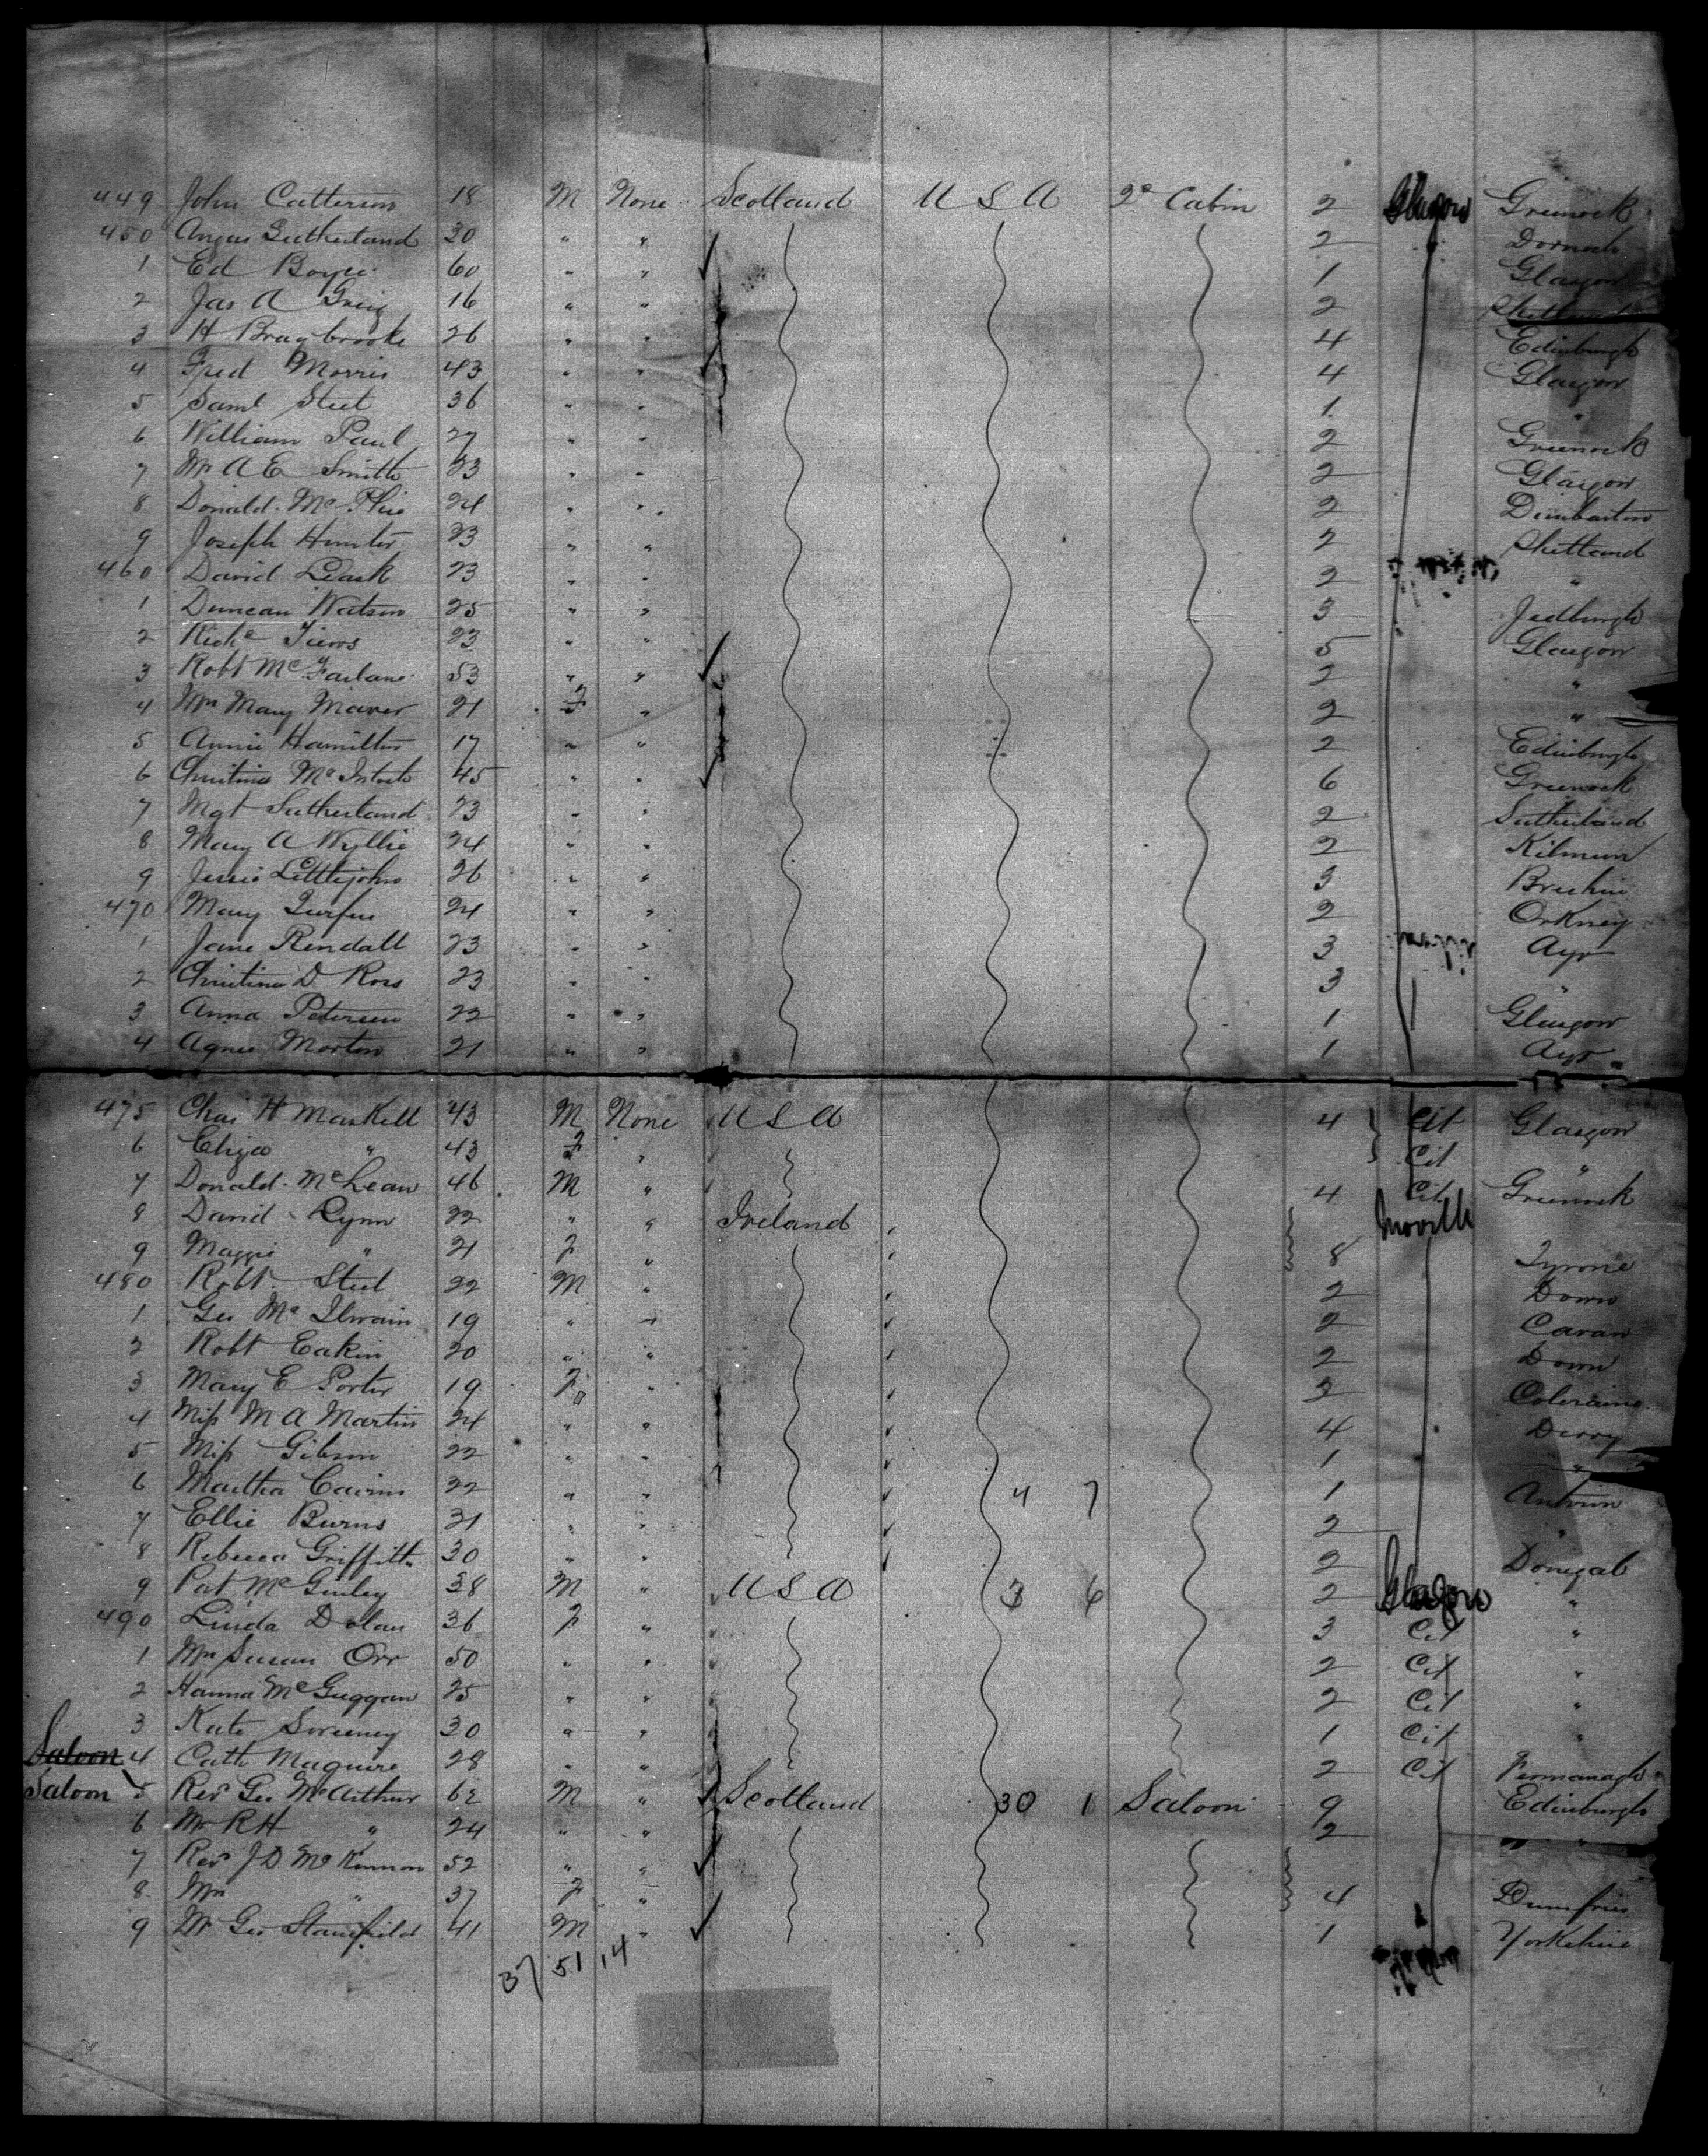 449 John Catterson 18 M None Scotland U S A 2ᵈ Cabin 2 Glasgow Greenock
450 Angus Sutherland 30 " " 2 Dornoch
1 Ed Boyce 60 " " 1 Glasgow
2 Jas A Greig 16 " " 2 Shetland
3 H Braybrooke 26 " " 4 Edinburgh
4 Fred Morris 43 " " 4 Glasgow
5 Saml Steel 36 " " 1 "
6 William Paul 27 " " 2 Greenock
7 Mr A E Smith 23 " " 2 Glasgow
8 Donald McPhie 24 " " 2 Dumbarton
9 Joseph Hunter 23 " " 2 Shetland
460 David Leask 23 " " 2 "
1 Duncan Watson 25 " " 3 Jedburgh
2 23 " " 5 Glasgow
3 Robt McFarlane 53 " " 2 "
4 Mrs Mary Maver 21 F " 2 "
5 Annie Hamilton 17 " " 2 Edinburgh
6 Christina McIntosh 45 " " 6 Greenock
7 Mgt Sutherland 23 " " 2 Sutherland
8 Mary A Wyllie 24 " " 2 Kilmun
9 Jessie Littlejohn 26 " " 3 Brechin
470 Mary 24 " " 2 Orkney
1 Jane Rendall 23 " " 3 Ayr
2 Christina D Ross 23 " " 3 "
3 Anna Petersen 22 " " 1 Glasgow
4 Agnes Morton 21 " " 1 Ayr
475 Chas H Maskell 43 M None U S A 4 Cit Glasgow
6 Eliza " 43 F " Cit "
7 Donald McLean 46 M " 4 Cit Greenock
8 David Lynn 22 " " Ireland Moville
9 Maggie " 21 F " 8 Tyrone
480 Robt Steel 22 M " 2 Down
1 Geo McIlwain 19 " " 2 Cavan
2 Robt Eakin 20 " " 2 Down
3 Mary E Porter 19 F " 2 Coleraine
4 Miss M A Martin 24 " " 4 Derry
5 Miss Gibson 22 " " 1 "
6 Martha Cairns 22 " " 4 7 1 Antrim
7 Ellie Burns 21 " " 2 "
8 Rebecca Griffith 30 " " 2 Donegal
9 Pat McGinley 38 M " U S A 3 6 2 Glasgow "
490 Linda Dolan 36 F " 3 Cit "
1 Mrs Susan Orr 50 " " 2 Cit "
2 Hanna McGuggan 25 " " 2 Cit "
3 Kate Sweeney 30 " " 1 Cit "
Saloon 4 Cath Maguire 28 " " 2 Cit Fermanagh
Saloon 5 Rev Geo McArthur 62 M " Scotland 30 1 Saloon 9 Edinburgh
6 Mr R H " 24 " " 2 "
7 Rev J D McKinnon 52 " "
8 Mrs " 37 F " 4 Dumfries
9 Mr Geo Stansfield 41 M " 1 Yorkshire
37 51 14